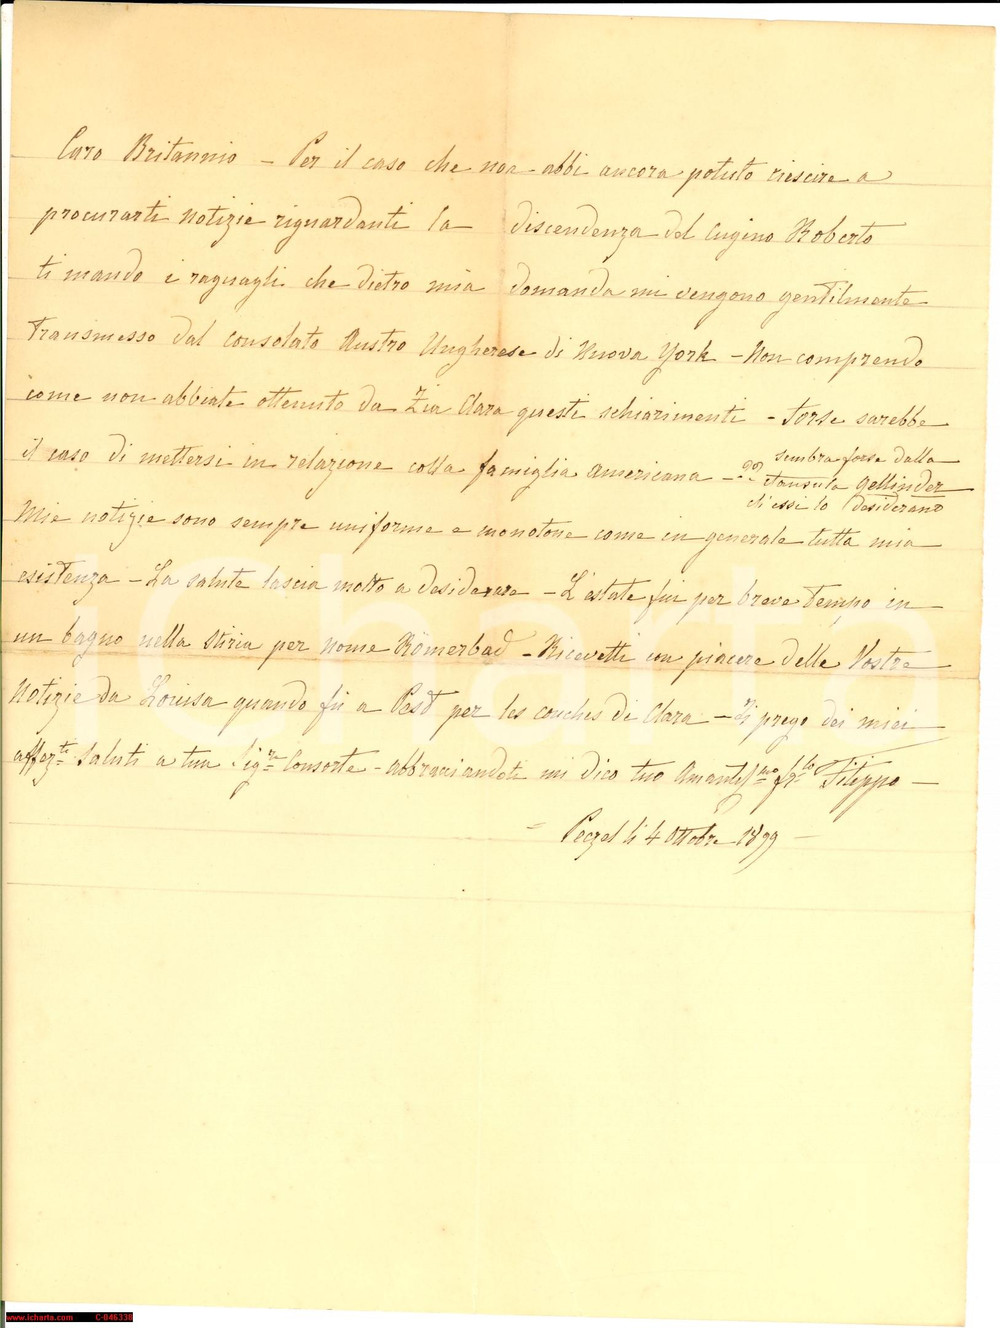 Caro Britannio – Per il caso che non abbi ancora potuto riescire a
procurarti notizie riguardanti la discendenza del cugino Roberto
ti mando i raguagli che dietro mia domanda mi vengono gentilmente
transmesso dal Consolato Austro Ungherese di Nuova York – Non comprendo
come non abbiate ottenuto da Zia Clara questi schiarimenti – Forse sarebbe
il caso di mettersi in relazione colla famiglia Americana –
sembra forse dalla
Gellinder
ch'essi lo desiderano
Mie notizie sono sempre uniforme e monotone come in generale tutta mia
esistenza – La salute lascia molto a desiderare – L'estate fui per breve tempo in
un bagno nella Stiria per nome Römerbad – Ricevetti con piacere delle Vostre
Notizie da Louisa quando fui a Pest per les couches di Clara – Ti prego dei miei
affez.ti Saluti a tua Sig.ra Consorte – abbracciandoti mi dico tuo Amantiss.mo fr.llo Filippo –
Peczel li 4 Ottobre 1899 –
iCharta
www.icharta.com C-046338